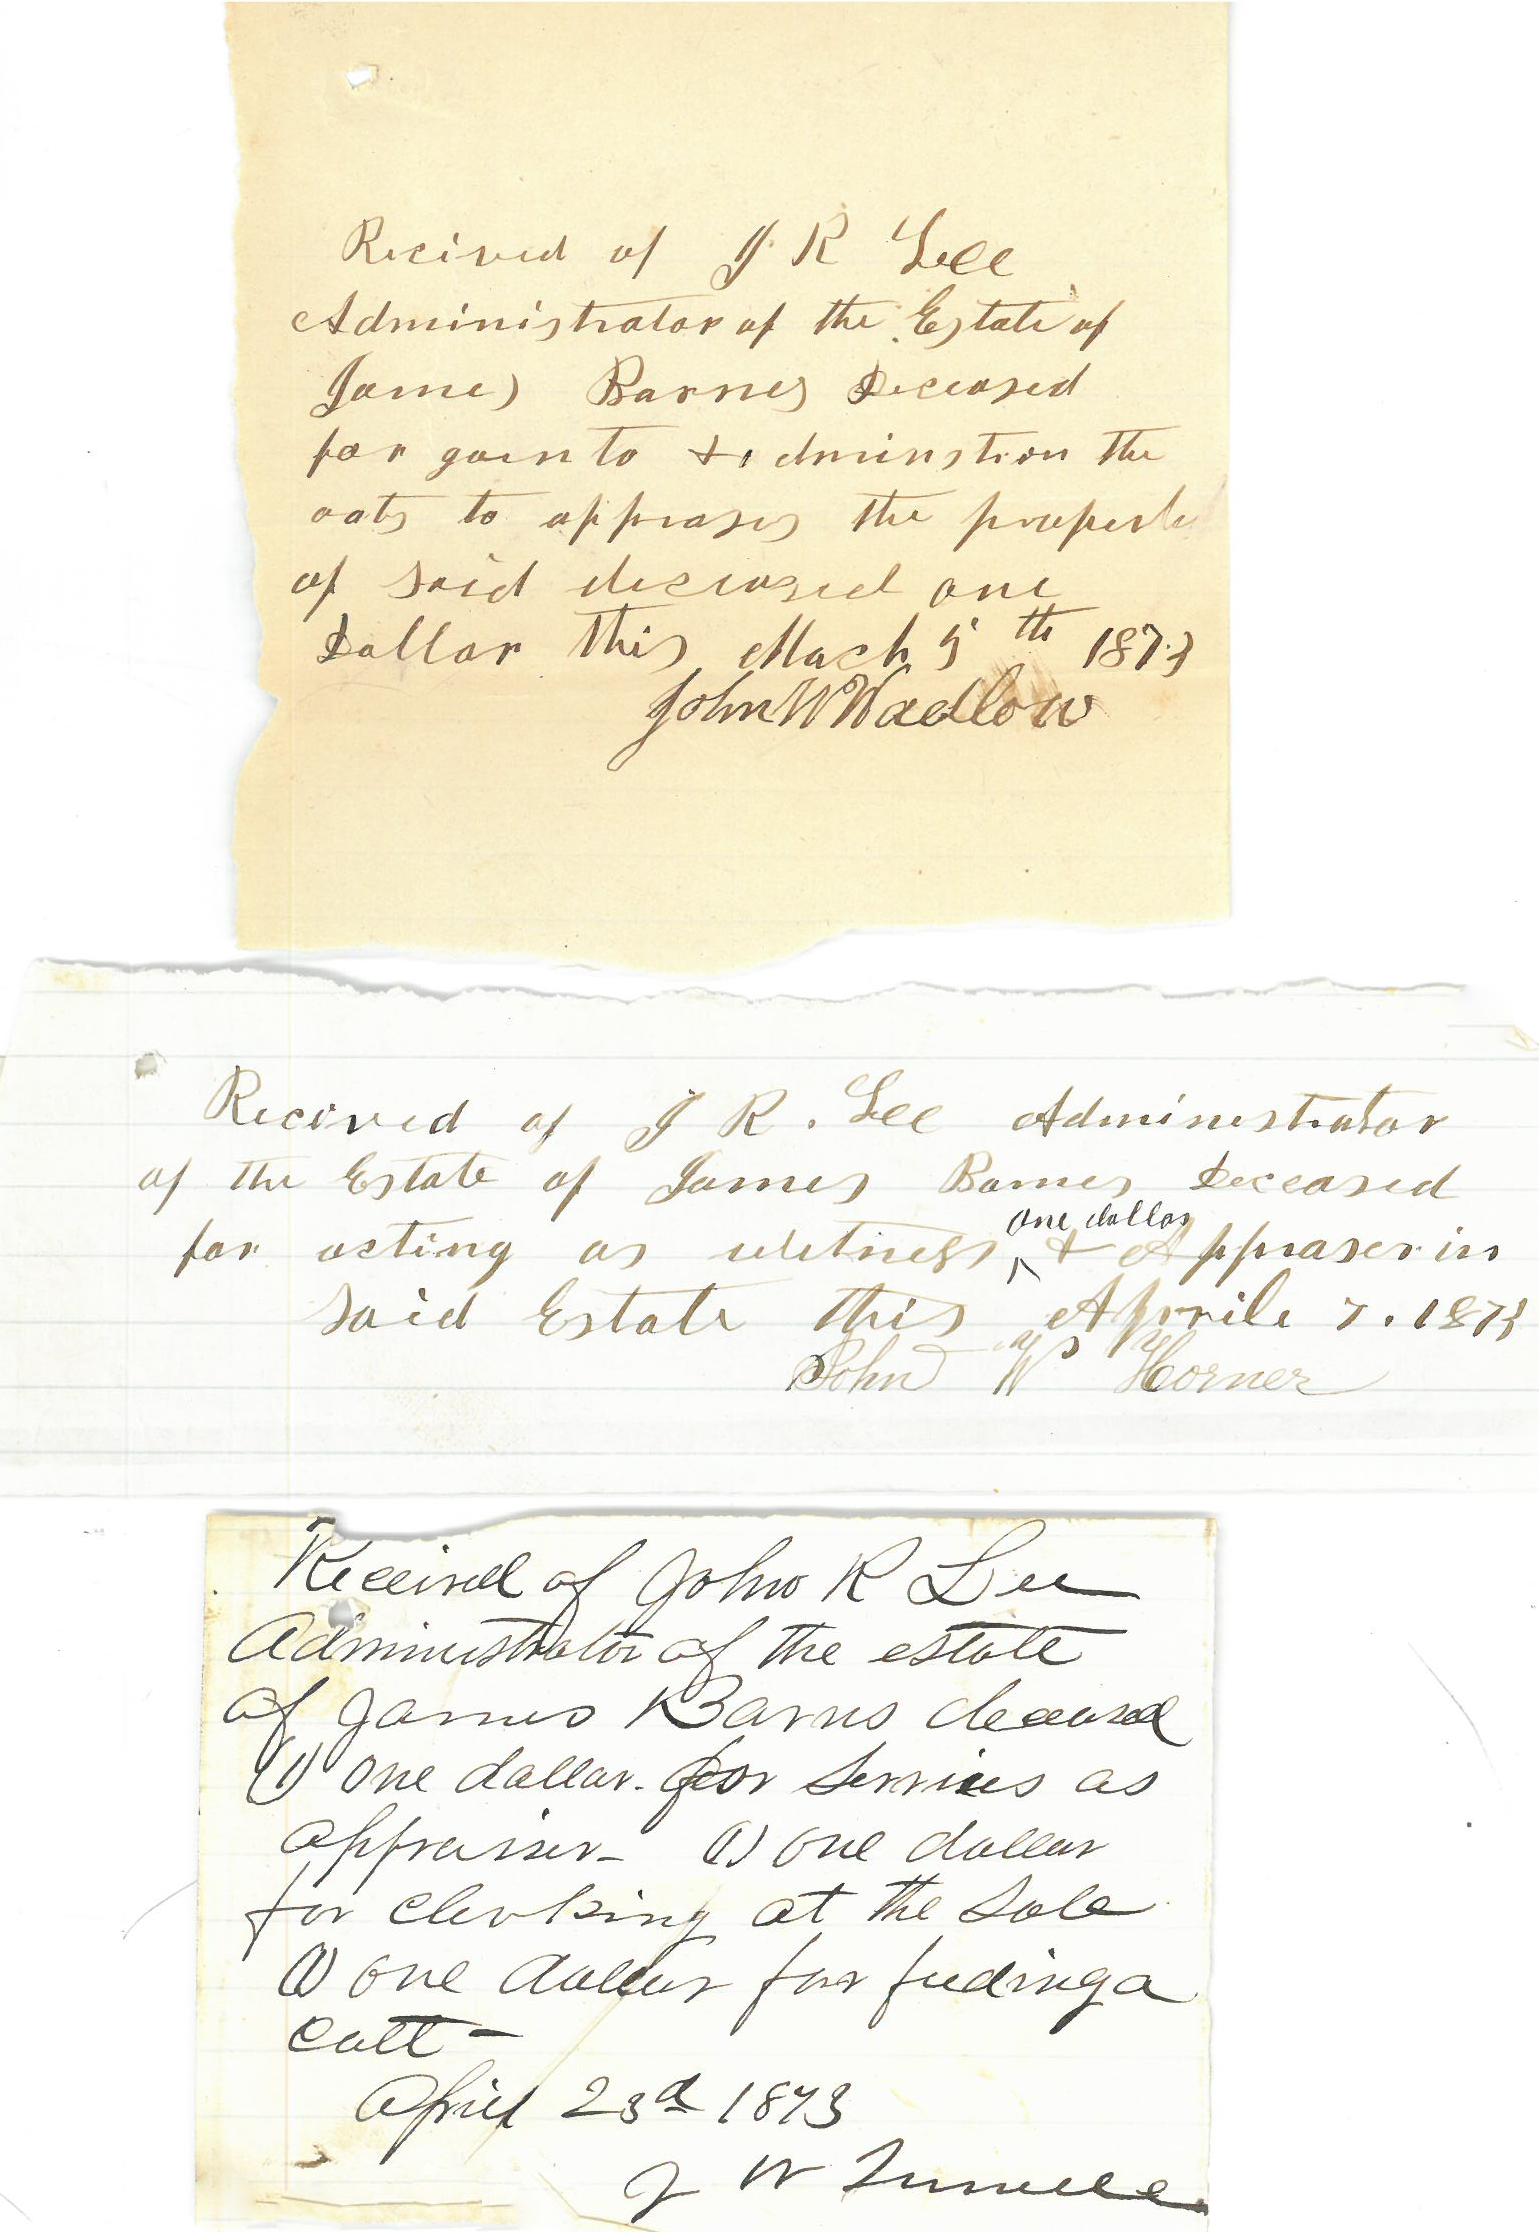 Recived of J R Lee
Administrator of the Estate of
James Barnes Deceased
for goin to & adminstron the
oats to apprases the property
of said deceased one
Dollar this Mach 5th 1873
John W Wadlow
Recived of J R. Lee Administrator
of the Estate of James Barnes Deceased
one dollar
for acting as witness ^ & Appraser in
said Estate this Aprile 7. 1873
John W Horner
Received of John R Lee
Administrator of the estate
of James Barnes deceased
(1) one dollar. for Services as
appraiser - (1) one dollar
for clerking at the Sale
(1) one dollar for feeding a
Colt -
April 23d 1873
J W